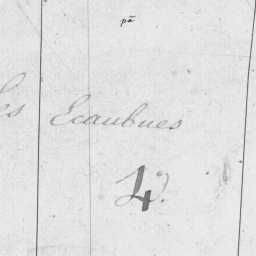 pã
es Ecaubues
4